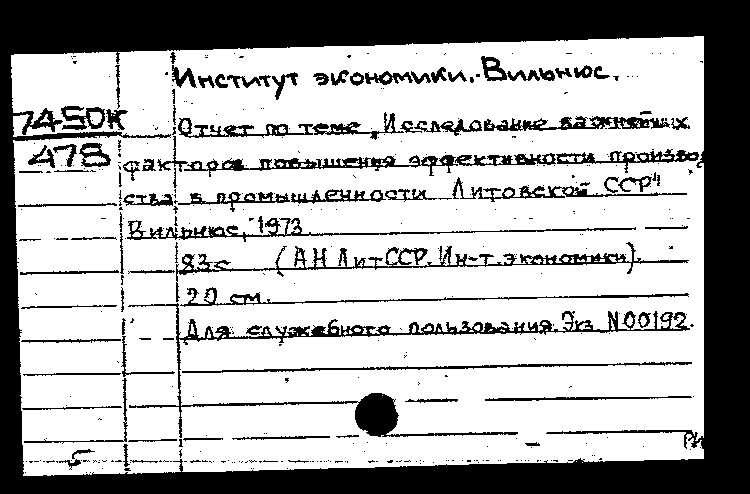 Институт экономики. Вильнюс.
74-50К
478
Отчет по теме „Исследование важнейших
факторов повышения эффективности произво
ства в промышленности Литовской ССР"
Вильнюс, 1973.
83с (АН ЛитССР. Ин-т. экономики).
20 см.
Для служебного пользования. Экз. N00192.